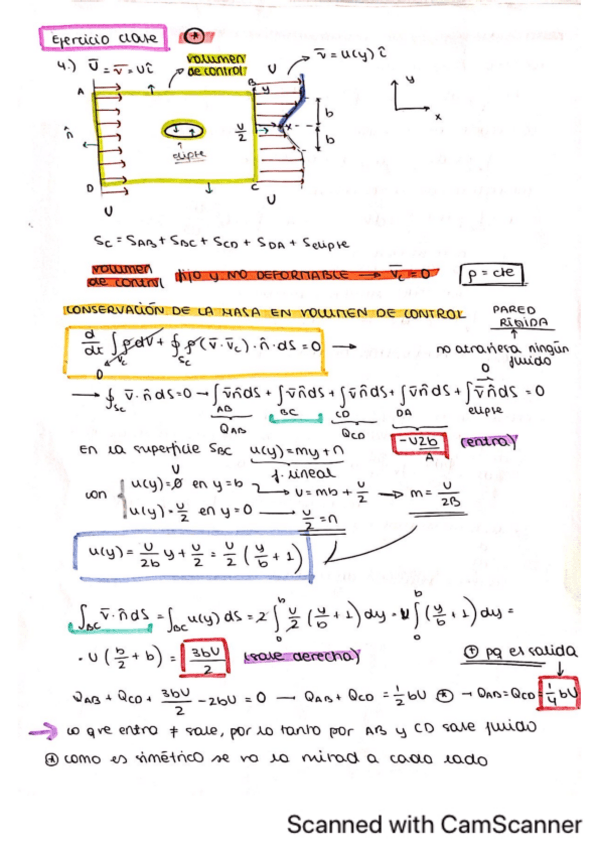 Ejercicio clase *
4.) Ū = v̄ = Uî
volumen de control
U
v̄ = u(y) î
A
B
y
y
n̂
elipse
U/2
x
b
b
x
D
C
U
U
Sc = SAB + SBC + SCD + SDA + Selipse
volumen de control fijo y NO DEFORMABLE → v̄c = 0
ρ = cte
CONSERVACIÓN DE LA MASA EN VOLUMEN DE CONTROL
PARED RÍGIDA
d/dt ∫Vc ρdV + ∮Sc ρ(v̄ - v̄c) · n̂ · dS = 0 →
0
no atraviesa ningún fluido
0
→ ∮Sc v̄ · n̂ dS = 0 → ∫AB v̄n̂dS + ∫BC v̄n̂dS + ∫CD v̄n̂dS + ∫DA v̄n̂dS + ∫elipse v̄n̂dS = 0
QAB
QCD
-U2b/A
(entra)
En la superficie SBC u(y) = my + n
f. lineal
con { u(y) = U en y = b → U = mb + U/2 → m = U/2B
u(y) = U/2 en y = 0 → U/2 = n
u(y) = U/2b y + U/2 = U/2 (y/b + 1)
∫BC v̄ · n̂ dS = ∫BC u(y) dS = 2 ∫0^b U/2 (y/b + 1) dy = U ∫0^b (y/b + 1) dy =
= U (b/2 + b) = 3bU/2 (sale derecha)
⊕ pq es salida
QAB + QCD + 3bU/2 - 2bU = 0 → QAB + QCD = 1/2 bU ⊛ → QAB = QCD = 1/4 bU
→ lo que entra ≠ sale, por lo tanto por AB y CD sale fluido
⊛ como es simétrico se va la mitad a cada lado
Scanned with CamScanner